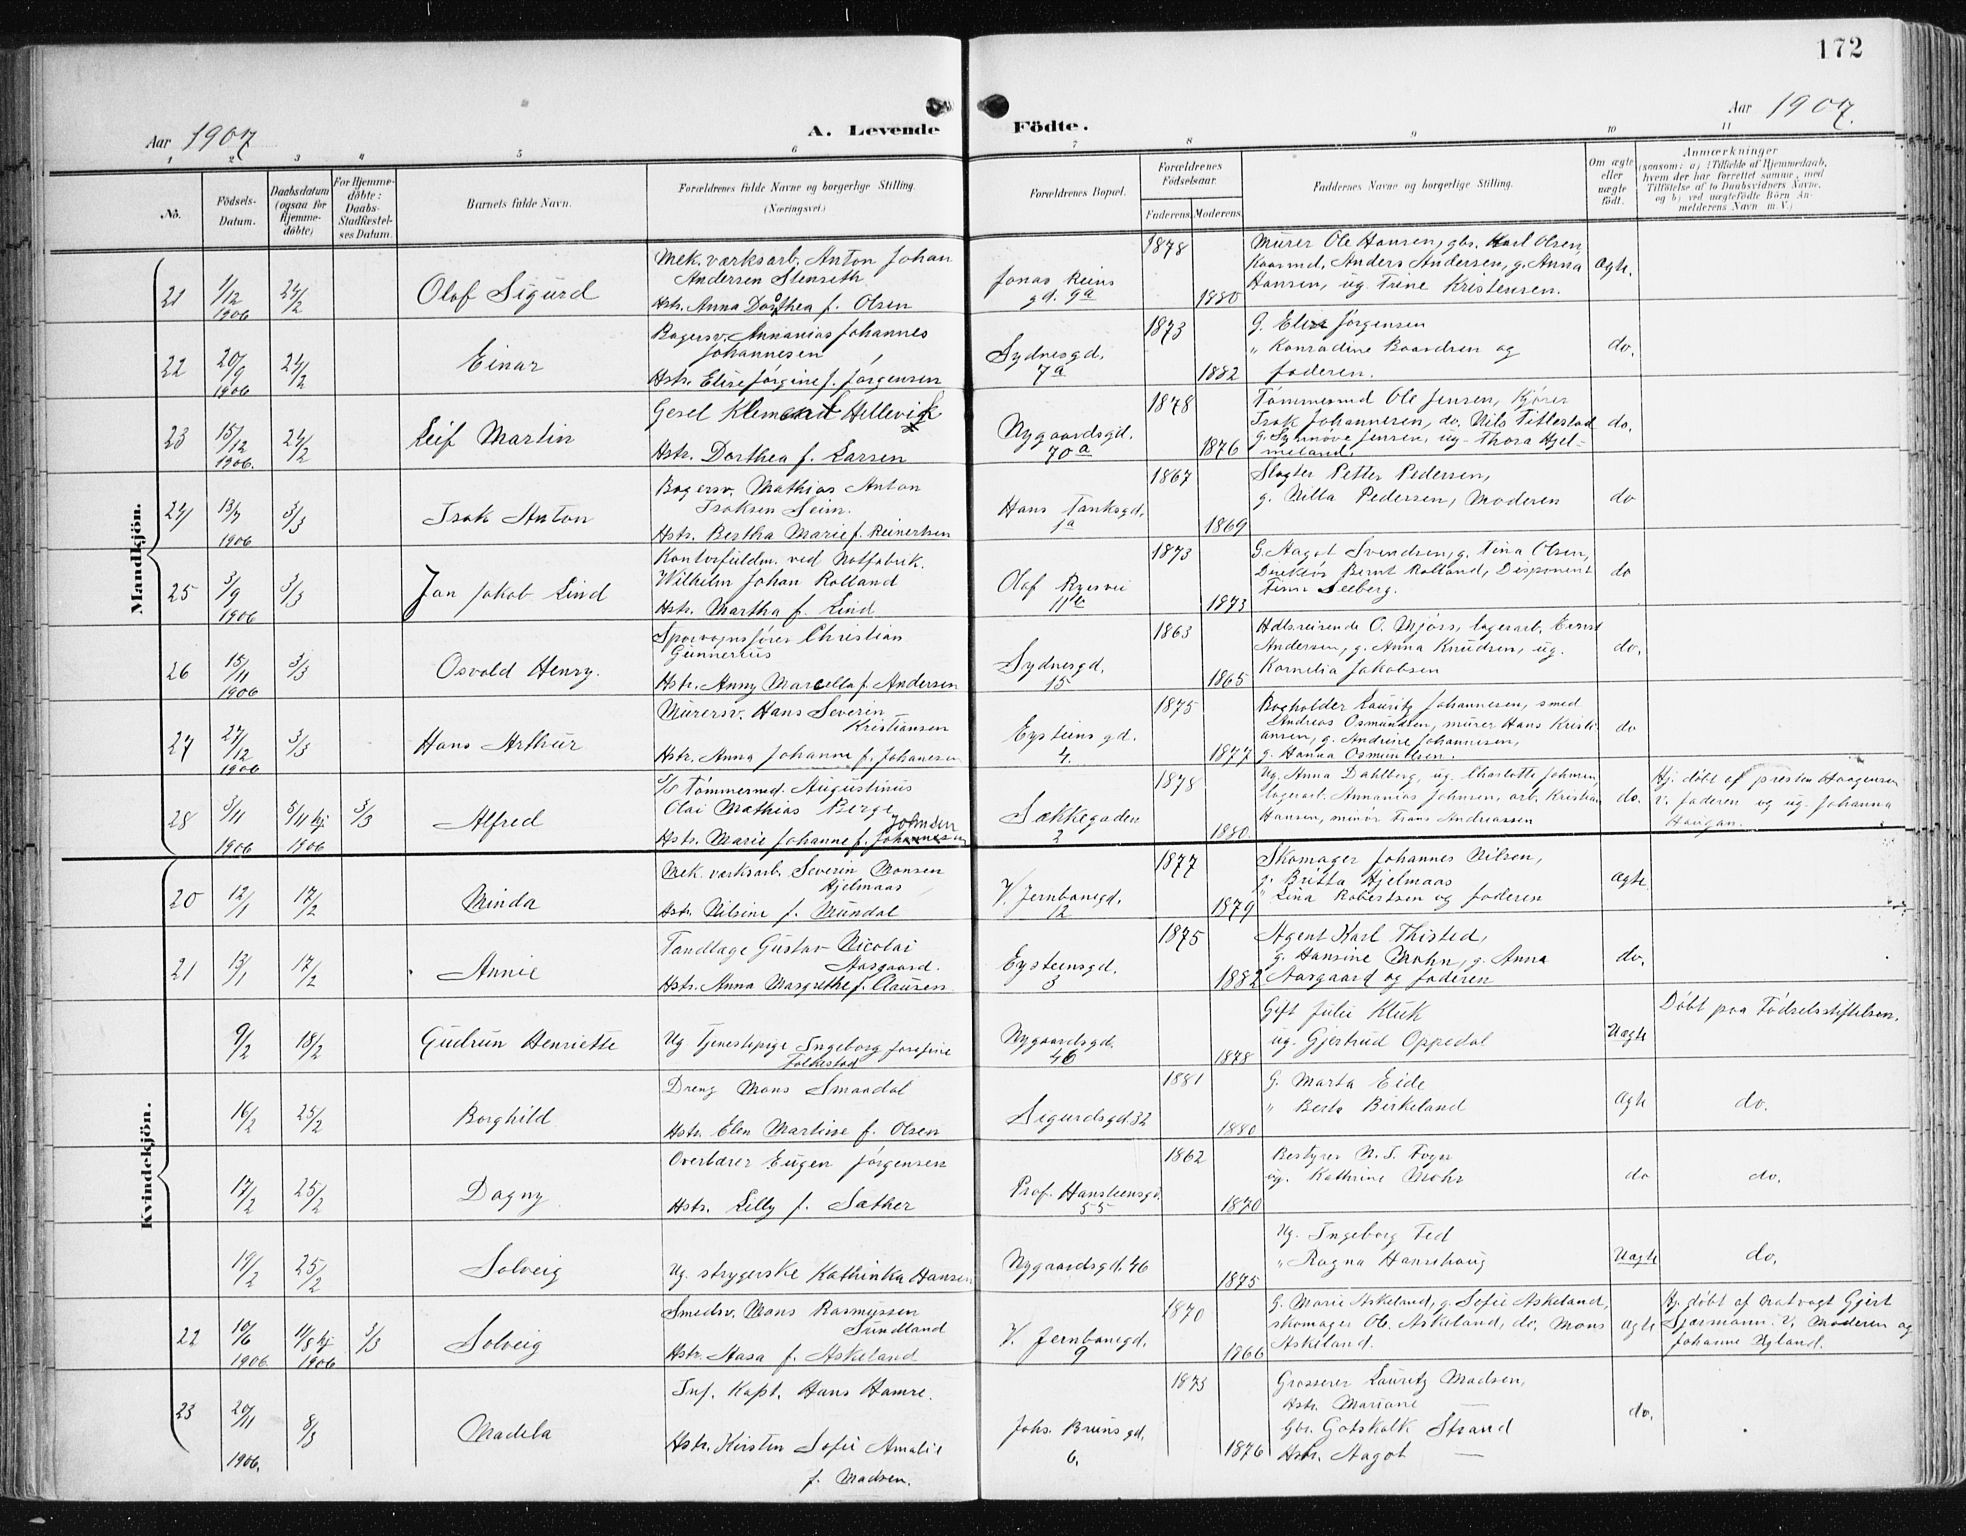 172
Aar 1907
A. Levende Födte.
Aar 1907.
1 2 3 4 5 6 7 8 9 10 11
No.
Födsels-
Datum.
Daabsdatum
(ogsaa for
Hjemme-
döbte)
For Hjemme-
döbte:
Daabs-
Stadfæstel-
ses Datum.
Barnets fulde Navn.
Forældrenes fulde Navne og borgerlige Stilling.
(Næringsvei.)
Forældrenes Bopæl.
Forældrenes
Födselsaar.
Faderens. Moderens.
Faddernes Navne og borgerlige Stilling.
Om ægte
eller
uægte
födt.
Anmærkninger
(saasom: a) i Tilfælde af Hjemmedaab,
hvem der har forrettet samme, med
Tilföielse af to Daabsvidners Navne,
og b) ved uægtefödte Börn An-
melderens Navn m. V.)
Mandkjön.
21 1/12 1906 24/2
Olof Sigurd
Mek. værksarb. Anton Johan
Andersen Stenseth
Hstr. Anna Dorthea f. Olsen
Jonas Reins
gd. 9a
1878
1880
Murer Ole Hansen, gbr. Karl Olsen,
Kaarmd. Anders Andersen, g. Anna
Hansen, ug Trine Kristensen.
Ægte.
22 20/9 1906 24/2
Einar
Bagersv. Annanias Johannes
Johannesen
Hstr. Elise Jørgine f. Jørgensen
Sydnesgd.
7a
1873
1882
G. Elise Jørgensen
" Konradine Baardsen og
faderen.
do.
23 15/12 1906. 24/2
Leif Martin
Gesel Klement Hillevik
Hstr. Dorthea f. Larsen
Nygaardsgd.
70a
1878
1876
Tømmermd Ole Jensen, Kjører
Isak Johannesen, do. Nils Tillestad
g. Synnøve Jensen, ug. Thora Hjel-
meland.
do.
24 13/7 1906 3/3
Isak Anton
Bagersv. Mathias Anton
Isaksen Seim.
Hstr. Bertha Marie f. Reinertsen
Hans Tanksgd.
1a
1867
1869
Slagter Petter Pedersen,
g. Nilla Pedersen, Moderen
do
25 3/9 1906 3/3
Jan Jakob Lind
Kontorfuldm. ved Notfabrik.
Wilhelm Johan Rolland
Hstr. Martha f. Lind
Olaf Ryesvei
11b
1873
1873
G. Aagot Svendsen, g. Tina Olsen,
Direktør Bernt Rolland, Disponent
Finn Seeberg.
do
26 15/11 1906 3/3
Osvald Henry.
Sporvognsfører Christian
Gunnerius
Hstr. Anny Marcella f. Andersen
Sydnesgd.
15
1863
1865
Hdlsreisende O. Mjøss, lagerarb. Ernst
Andersen, g. Anna Knudsen, ug.
Kornelia Jakobsen
do.
27 27/12 1906 3/3
Hans Arthur
Murersv. Hans Severin
Kristiansen
Hstr. Anna Johanne f. Johanesen
Eysteins gd.
4.
1875
1877
Bogholder Lauritz Johannesen, smed
Andreas Osmundsen, murer Hans Kristi-
ansen, g. Andrine Johannesen,
g. Hanna Osmundsen.
do
28 3/11 1906 5/11 hj 1906 3/3
Alfred
Tømmermd. Augustinus
Olai Mathias Berge
Johnsen
Hstr. Marie Johanne f. Johannesen
Sækkegaden
2
1878
1880
Ug. Anna Dahlberg, ug. Charlotte Johnsen,
lagerarb. Annanias Johnsen, arb. Kristian
Hansen, minør Frans Andreassen
do.
Hj. døbt af presten Haagensen
v. faderen og ug. Johanna
Haugan.
Kvindekjön.
20 12/1 17/2
Minda
Mek. værksarb. Severin Monsen
Hjelmaas
Hstr. Nilsine f. Mundal
V. Jernbanegd.
12
1877
1879
Skomager Johannes Nilsen,
g. Britta Hjelmaas
" Lina Robertsen og faderen
Ægte
21 13/1 17/2
Annie
Tandlæge Gustav Nicolai
Aasgaard.
Hstr. Anna Margrethe f. Clausen.
Eysteensgd.
3
1875
1882
Agent Karl Thisted,
g. Hansine Mohn, g. Anna
Aasgaard og faderen
do.
9/2 18/2
Gudrun Henriette
Ug Tjenestepige Ingeborg Josefine
Folkestad
Nygaardsgd.
46
1878
Gift Julie Kluk
ug. Gjertrud Oppedal
Uægte
Døbt paa Fødselsstiftelsen.
16/2 25/2
Borghild
Dreng Mons Smaadal
Hstr. Elen Martine f. Olsen
Sigurdsgd. 32
1881
1880
G. Marta Eide
" Berta Birkeland
Ægte
do.
17/2 25/2
Dagny
Overlærer Eugen Jørgensen
Hstr. Lilly f. Sæther
Prof. Hansteensgd.
55
1862
1870
Bestyrer N. S. Fogn
ug. Kathrine Mohr
do
do.
19/2 25/2
Solveig
Ug. strygerske Kathinka Hansen
Nygaardsgd. 46
1875
Ug. Ingeborg Fed
" Ragna Hansehaug
Uægte
do.
22 10/6 1906. 11/8 hj 1906 3/3
Solveig
Smedsv. Mons Rasmussen
Sundland
Hstr. Aasa f. Askeland
V. Jernbanegd.
9
1870
1866
G. Marie Askeland, g. Sofie Askeland,
skomager Ol. Askeland, do. Mons
Askeland.
Ægte
Hj. døbt af natvagt Gjert
Sjærmann. V. Moderen og
Johanne Nyland.
23 20/11 1906. 8/3
Madela
Inf. Kapt. Hans Hamre.
Hstr. Kirsten Sofie Amalie
f. Madsen.
Johs. Bruns gd.
6.
1873
1876
Grosserer Lauritz Madsen,
Hstr. Mariane —
Gbr. Gotskalk Strand
Hstr. Aagot —
do.